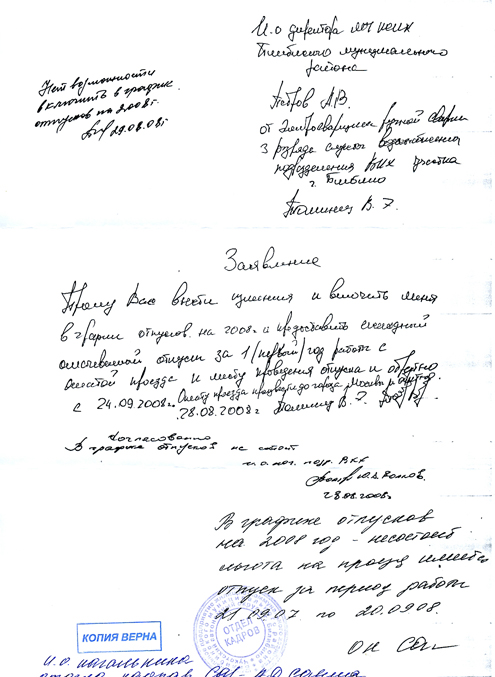 И.о директора
Билибинского муниципального
района
Петров А.В.
от Электросварщика ручной сварки
3 разряда службы
подразделения ВКХ участка
г. Билибино
В. Г.
Нет возможности
включить в график
отпусков на 2008г.
29.08.08г
Заявление
Прошу Вас внести изменения и включить меня
в график отпусков. на 2008г и предоставить очередной
оплачиваемый отпуск за 1/первый/год работы с
оплатой проезда к месту проведения отпуска и обратно
с 24.09.2008г. Оплату проезда произвести до города Москвы и обратно.
28.08.2008г В. Г.
Согласовано
В графике отпусков не стоит
и.о. нач. подр. ВКХ
28.08.2008г
В графике отпусков
на 2008 год - несостоит
льгота на проезд имеется
отпуск за период работы
21.09.07. по 20.09.08.
ОК
ОТДЕЛ
КАДРОВ
КОПИЯ ВЕРНА
И.о. начальника
отдела кадров